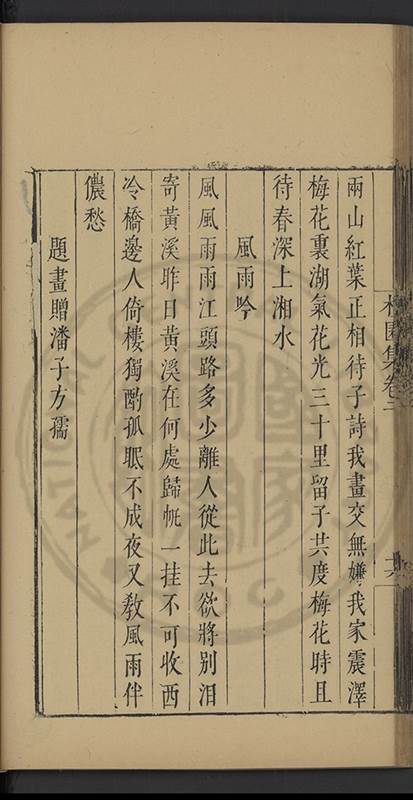 兩山紅葉正相待子詩我畫交無嫌我家震澤
梅花裏湖氣花光三十里留子共度梅花時且
待春深上湘水
風雨吟
風風雨雨江頭路多少離人從此去欲將別泪
寄黃溪昨日黃溪在何處歸帆一挂不可收西
冷橋邊人倚樓獨酌孤眠不成夜又教風雨伴
儂愁
題畫贈潘子方孺